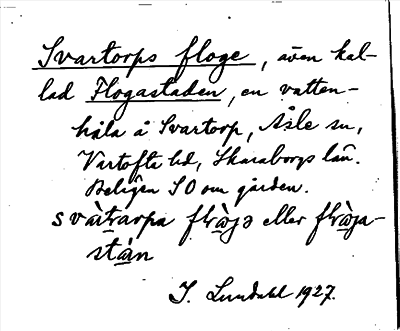 Svartorps floge, även kal-
lad Flogastaden, en vatten-
håla å Svartorp, Åsle sn,
Vartofta hd, Skaraborgs län.
Belägen SO om gården.
eller
I. Lundahl 1927.